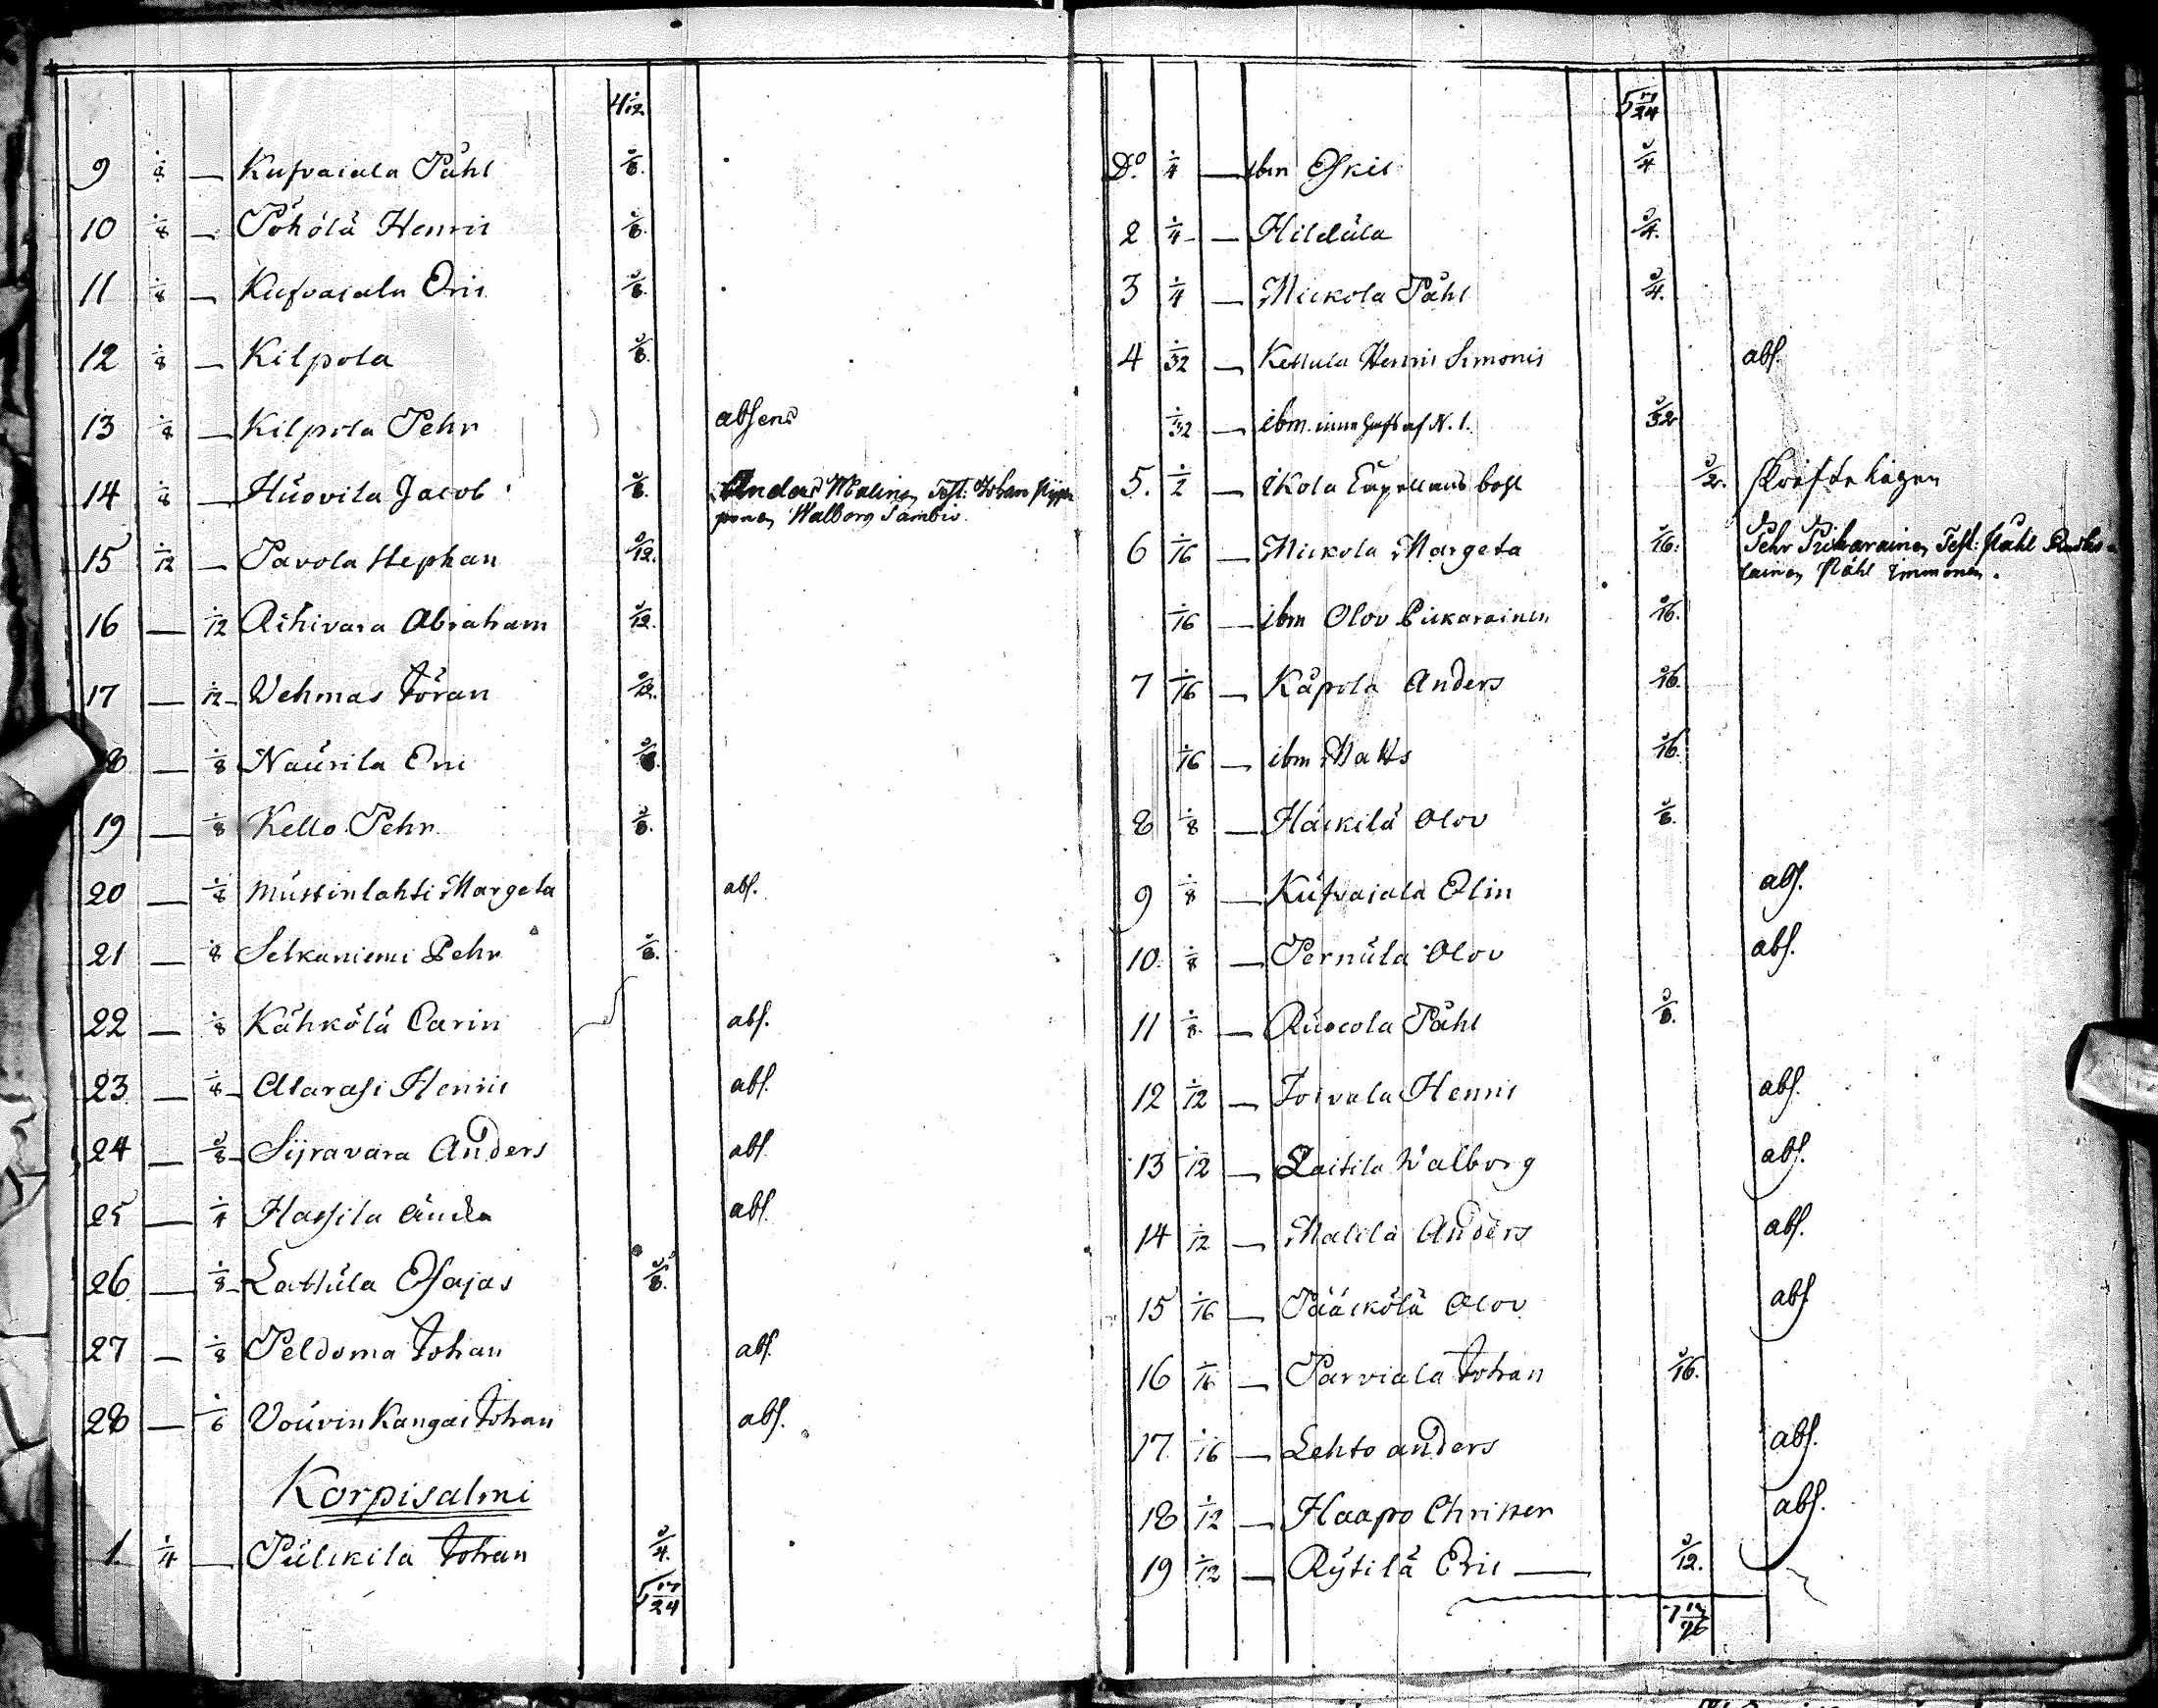 4 1/12
9 1/8 — Kufvaiala Påhl 1/8.
10 1/8 — Pöhölä Henric 1/8.
11 1/8 — Kufvaiala Eric 1/8.
12 1/8 — Kilpola 1/8.
13 1/8 — Kilpola Pehr absens
14 1/8 — Huovila Jacob 1/8. Anders Malinen Test: Johan
Walborg Sambio.
15 1/12 — Pavola Stephan 1/12.
16 — 1/12 Rihivara Abraham 1/12.
17 — 1/12 Vehmas Jöran 1/12.
18 — 1/8 Naurila Eric 1/8.
19 — 1/8 Kello Pehr 1/8.
20 — 1/8 Mustinlahti Margeta abs.
21 — 1/8 Selkaniemi Pehr 1/8.
22 — 1/8 Kähkölä Carin abs.
23 — 1/8 Alarasi Henric abs.
24 — 1/8 Sijravara Anders abs.
25 — 1/4 Hassila abs.
26 — 1/8 Lattula Esajas 1/8.
27 — 1/8 Peldoma Johan abs.
28 — 1/6 Vouvinkangas Johan abs.
Korpisalmi
1. 1/4 — Pulckila Johan 1/4.
5 17/24
5 17/24
Do. 1/4 — ibm Eskil 1/4
2 1/4 — Hildula 1/4.
3 1/4 — Mickola Påhl 1/4.
4 1/32 — Kettula Henric Simonis abs.
1/32 — ibm. af N. 1. 1/32
5. 1/2 — Ikola Capellans bohl 1/2.
6 1/16 — Mickola Margeta 1/16. Pehr Pickarainen Test: Påhl
lainen Påhl Immonen.
1/16 — ibm Olov Pickarainen 1/16.
7 1/16 — Kåpola Anders 1/16.
1/16 — ibm Matts 1/16.
8 1/8 — Häckilä Olov 1/8.
9 1/8 — Kufvaiala Elin abs.
10. 1/8 — Pernula Olov abs.
11 1/8 — Ruocola Påhl 1/8.
12 1/12 — Toivala Henric abs.
13 1/12 — Laitila Walborg abs.
14 1/12 — Malila Anders abs.
15 1/16 — Pääckölä Olov abs
16 1/16 — Parviala Johan 1/16.
17 1/16 — Lehto anders abs.
18 1/12 — Haapo Christer abs.
19 1/12 — Rytilä Eric — 1/12.